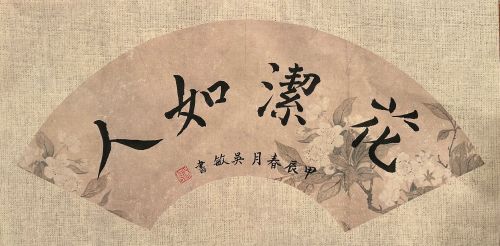 花潔如人
甲辰春月吳敏書